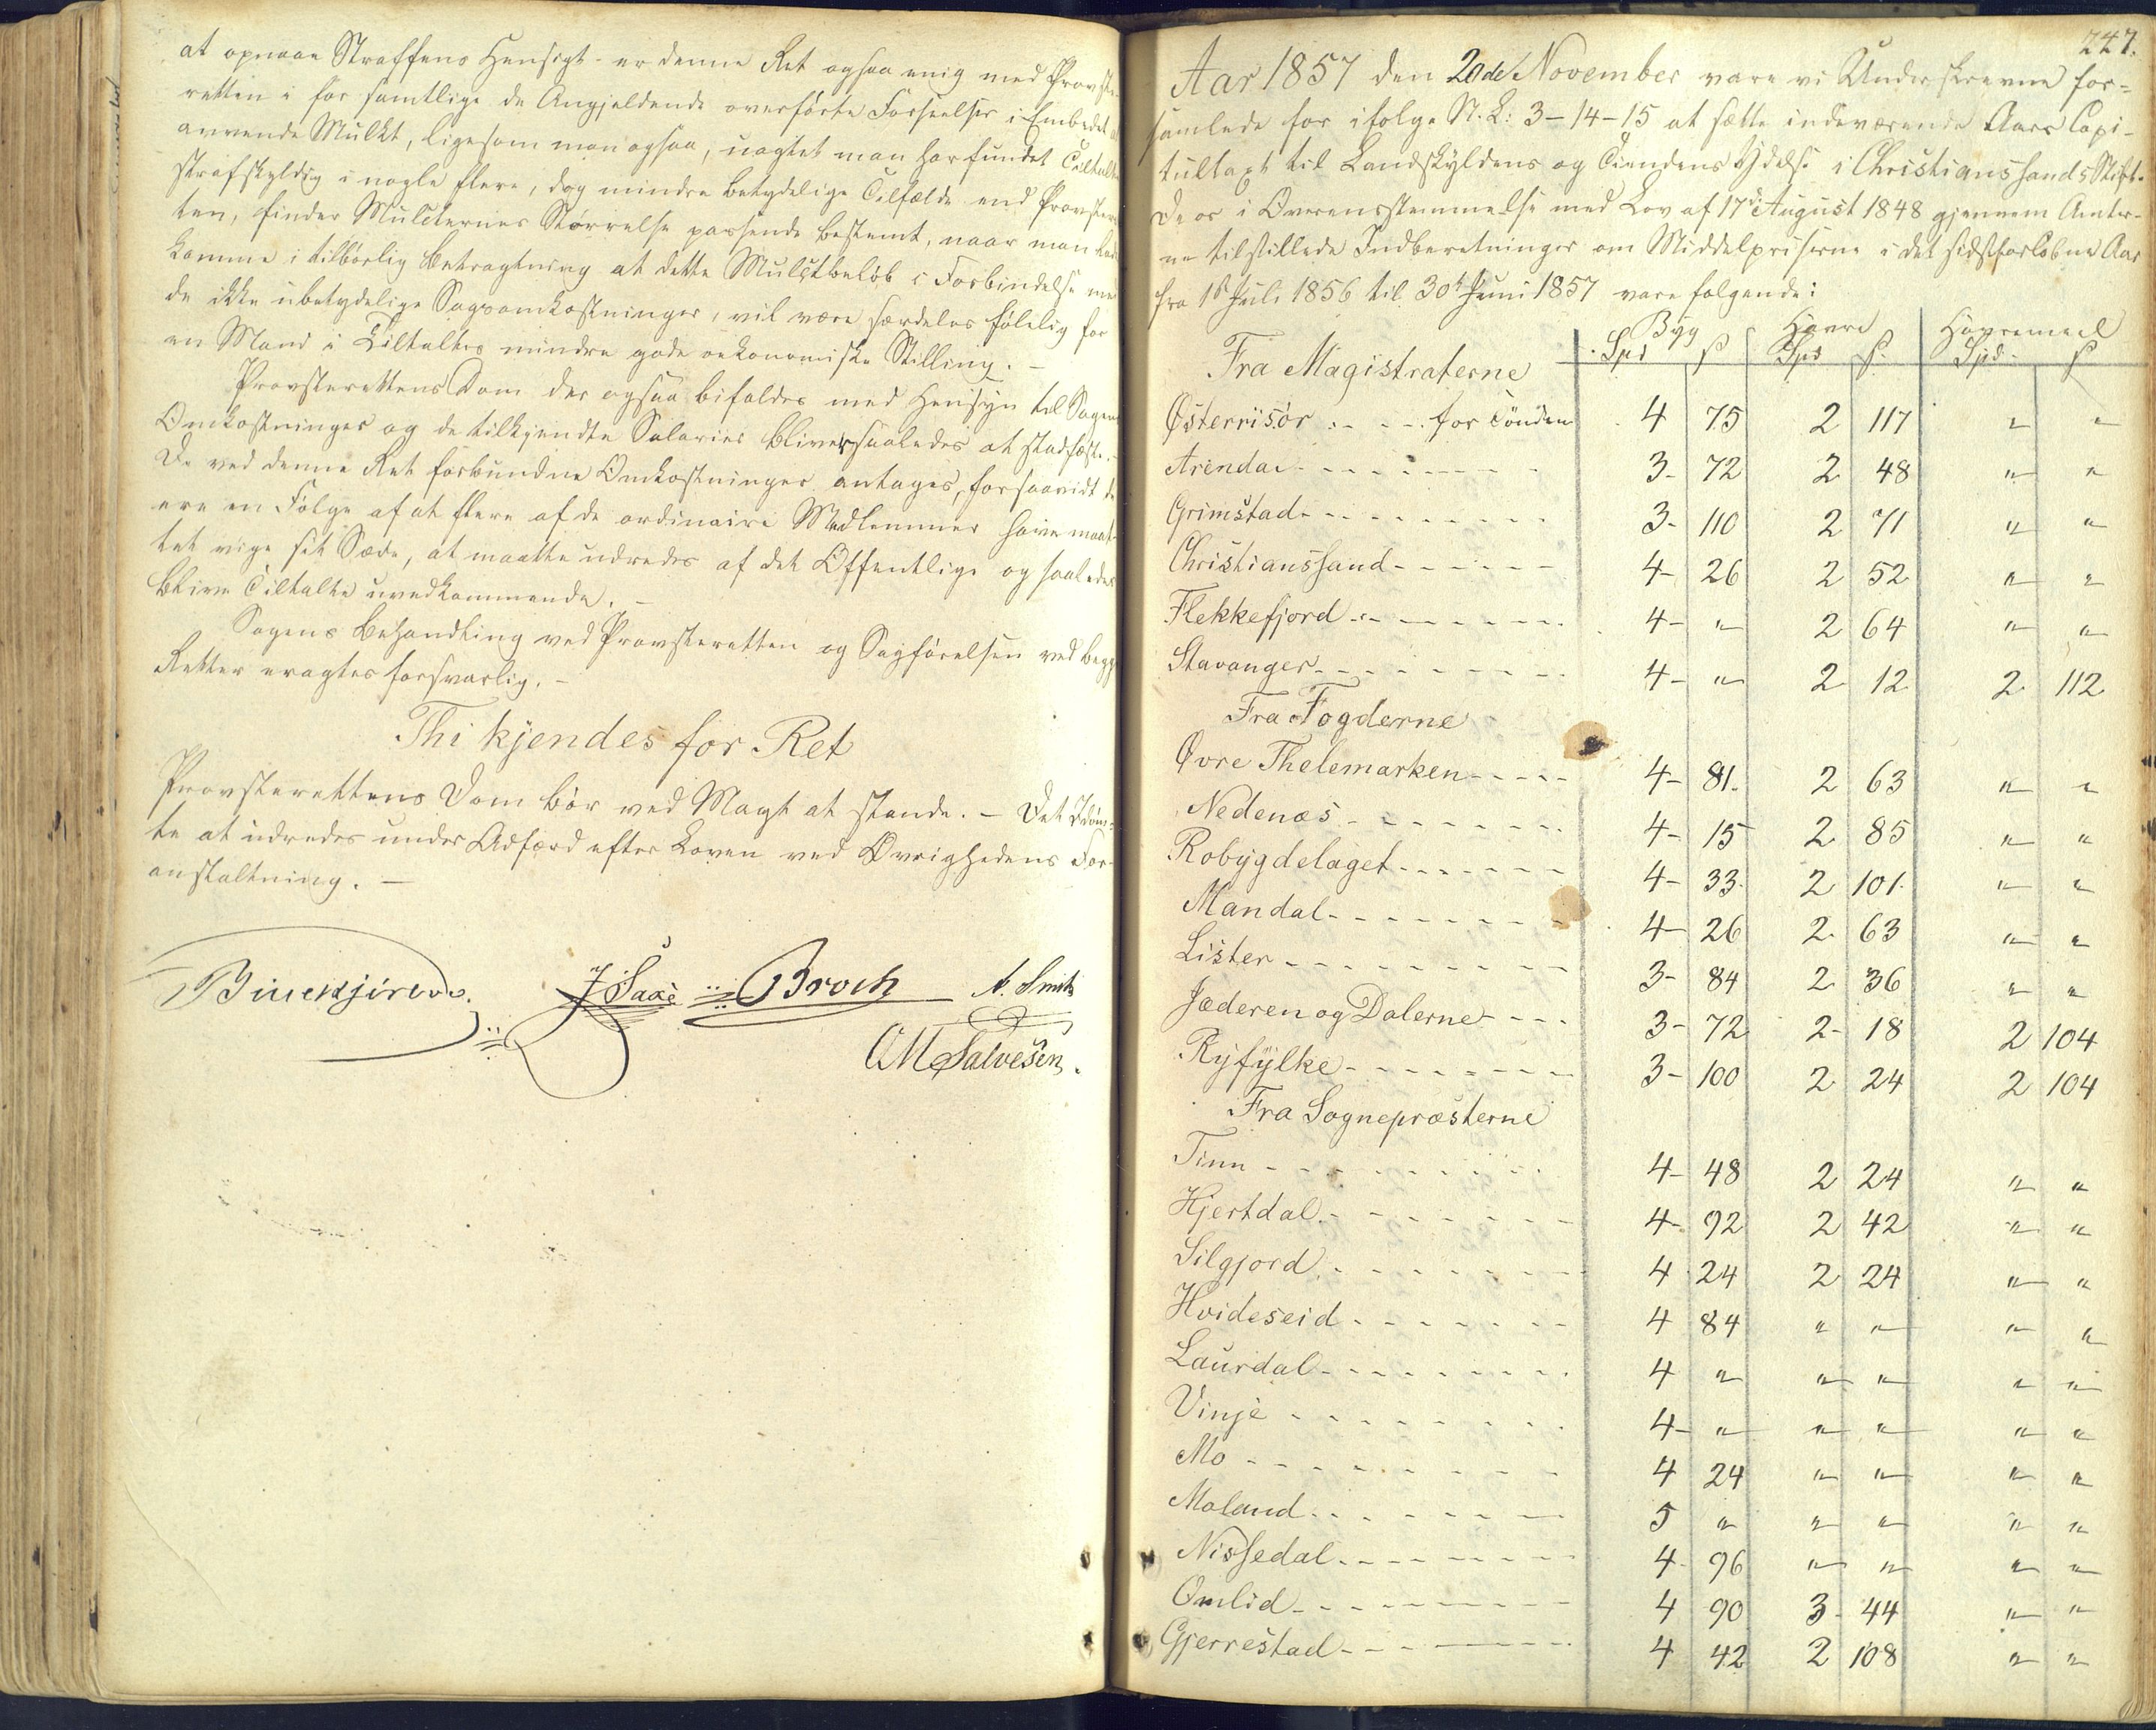 at opnaae Straffens Hensigt - er denne Ret ogsaa enig med Provste-
retten i for samtlige de Angjeldende overførte Forseelser i Embedet at
anvende Mulkt, ligesom man ogsaa, uagtet man har fundet Tiltalte
strafskyldig i nogle flere, dog mindre betydelige Tilfælde end Provsteret
ten, finder Mulcternes Størrelse passende bestemt, naar man lader
komme i tilbørlig Betragtning at dette Mulctbeløb i Forbindelse med
de ikke ubetydelige Sagsomkostninger, vil være særdeles følelig for
en Mand i Tiltaltes mindre gode oekonomiske Stilling. -
Provsterettens Dom der ogsaa bifaldes med Hensyn til Sagens
Omkostninger og de tilkjendte Salarier bliver saaledes at stadfæste. -
De ved denne Ret forbundne Omkostninger antages, forsaavidt de
ere en Følge af at flere af de ordinaire Medlemmer have maat-
tet vige sit Sæde, at maatte udredes af det Offentlige og saaledes
blive Tiltalte uvedkommende. -
Sagens Behandling ved Provsteretten og Sagførelsen ved begge
Retter eragtes forsvarlig. -
Thi kjendes for Ret
Provsterettens Dom bør ved Magt at stande. - Det Idøm-
te at udredes under Adfærd efter Loven ved Øvrighedens For-
anstaltning. -
J Saxe Broch A. Smith
OM Salvesen.
247.
Aar 1857 den 20de November vare vi Underskrevne for-
samlede for ifølge N. L: 3-14-15 at sætte indeværende Aars Capi-
tultaxt til Landskyldens og Tiendens Ydelse i Christianssands Stift.
De os i Overensstemmelse med Lov af 17de August 1848 gjennem Amter-
ne tilstillede Indberetninger om Middelpriserne i det sidstforløbne Aar
fra 1ste Juli 1856 til 30te Juni 1857 vare følgende:
Byg Havre Havremeel
Fra Magistraterne Spd ß Spd ß. Spd. ß
Østerriisør . - - . for Tønden 4 75 2 117 " "
Arendal 3- 72 2 48 " "
Grimstad 3- 110 2 71 " "
Christianssand 4- 26 2 52 " "
Flekkefjord 4- " 2 64 " "
Stavanger 4- " 2 12 2 112
Fra Fogderne
Øvre Thelemarken 4- 81. 2 63 " "
Nedenæs 4- 15 2 85 " "
Robygdelaget 4- 33. 2 101. " "
Mandal 4- 26 2. 63 " "
Lister 3- 84 2 36 " "
Jæderen og Dalerne 3- 72 2- 18 2 104
Ryfylke 3- 100 2 24 2 104
Fra Sognepræsterne
Tinn 4- 48 2 24 " "
Hjertdal 4- 92 2 42 " "
Silgjord 4 24 2 24 " "
Hvideseid 4 84 " " " "
Laurdal 4 " " " " "
Vinje 4- " " " " "
Mo 4 24 " " " "
Moland 5 " " " " "
Nissedal 4- 96 " " " "
Omlid 4 90 3- 44 " "
Gjerrestad 4 42 2 108 " "